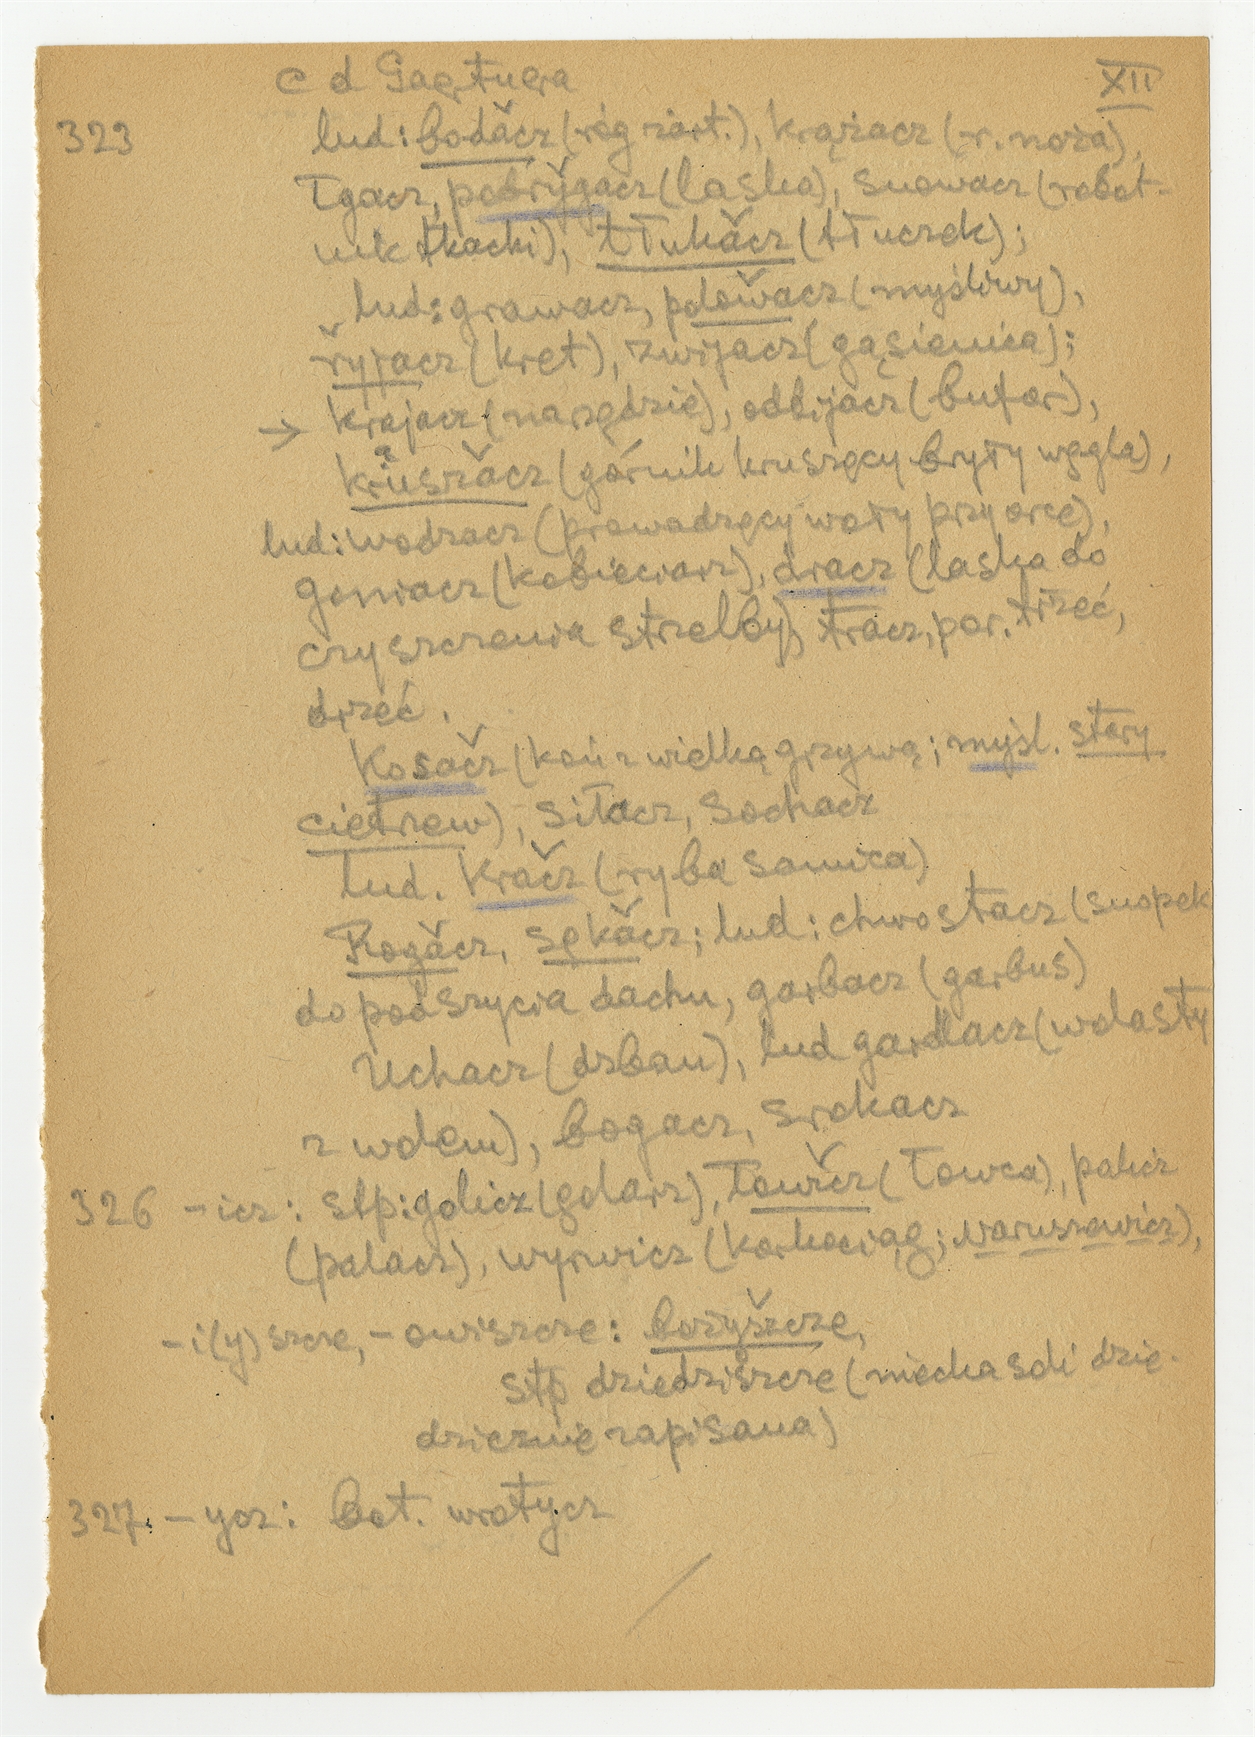 c d Gaertnera XII
323 lud: bodacz (róg żart.), krążacz (r. noża),
łgacz, pobrygacz (laska), snowacz (robot-
nik tkacki), tłukacz (tłuczek);
lud: grawacz, polowacz (myśliwy),
ryjacz (kret), zwijacz (gąsienica);
→ krajacz (narzędzie), odbijacz (bufor),
kruszacz (górnik kruszący bryły węgla),
lud: wodzacz (prowadzący woły przy orce),
goniacz (kobieciarz), dracz (laska do
czyszczenia strzelby), tracz, por. trzeć,
drzeć.
Kosacz (koń z wielką grzywą; myśl. stary
cietrzew), siłacz, sochacz
lud. Kracz (ryba samica)
Rogacz, sękacz; lud: chwostacz (snopek
do podszycia dachu, garbacz (garbus)
Uchacz (dzban), lud gardlacz (wolasty
z wolem), bogacz, srokacz
326 -icz: stp: golicz (golarz), łowicz (łowca), palicz
(palacz), wyrwicz (korkociąg; Naruszewicz),
-i(y)szcze, -owiszcze: bożyszcze,
stp dziedziszcze (miedza soli dzie-
dzicznie zapisana)
327. -ycz: bot. wrotycz